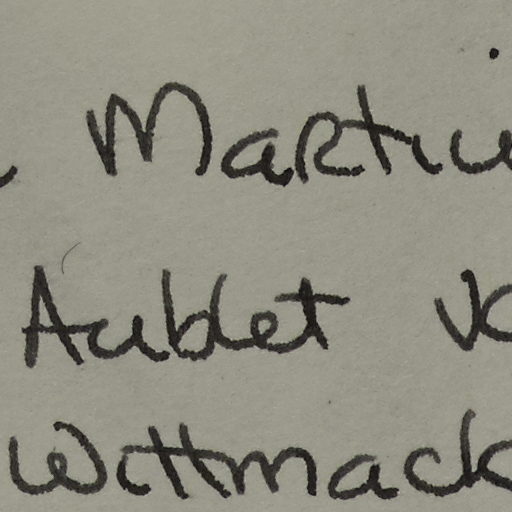 Martiu
Aublet
Wittmack